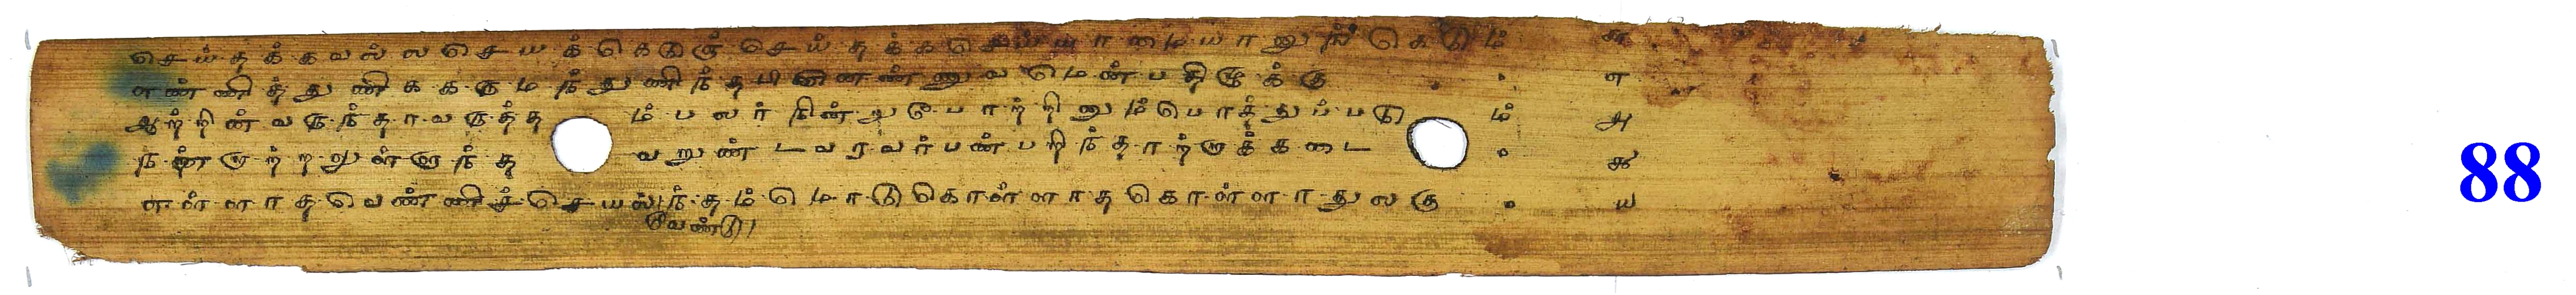 செய்தக்கவல்லசெயக்கெடுஞ்செய்தக்கசெய்யாமையானுங்கெடும் ௬
எண்ணித்துணிககருமந்துணிந்தபினெண்ணுவமென்பதிழுக்கு • ௭
ஆற்றின்வருந்தாவருத்தம்பலர்நின்றுபோற்றினும்பொத்துப்படும் ௮
நன்றாற்றலுள்ளுந்தவறுண்டவரவர்பண்பறிந்தாற்றாக்கடை • ௯
எள்ளாதவெண்ணிச்செயல்ந்தம்மொடுகொள்ளாதகொள்ளாதுலகு • ௰
வேண்டு
88